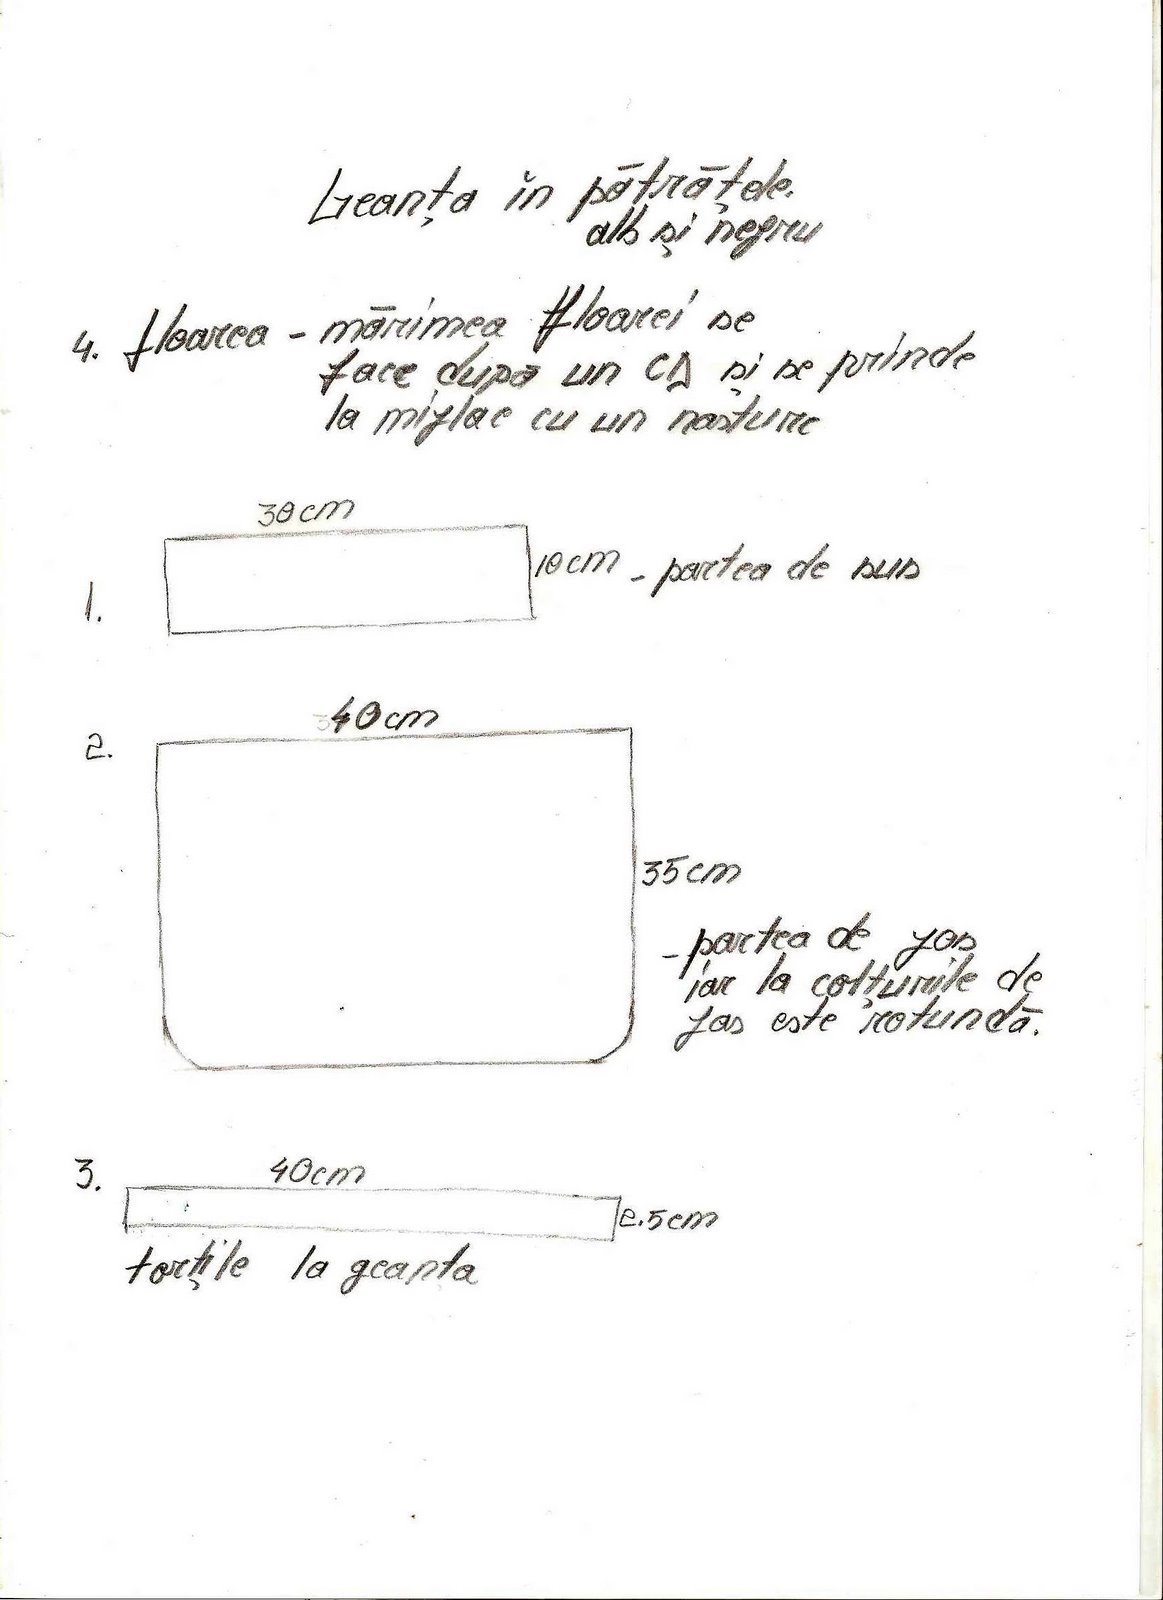 Geanța în pătrățele.
alb și negru
4. floarea - mărimea floarei se
face după un CD și se prinde
la mijlac cu un nasture
30cm
10cm - partea de sus
1.
40cm
2.
35cm
- partea de jos
iar la colțurile de
jos este rotundă.
3.
40cm
2.5cm
torțile la geanta